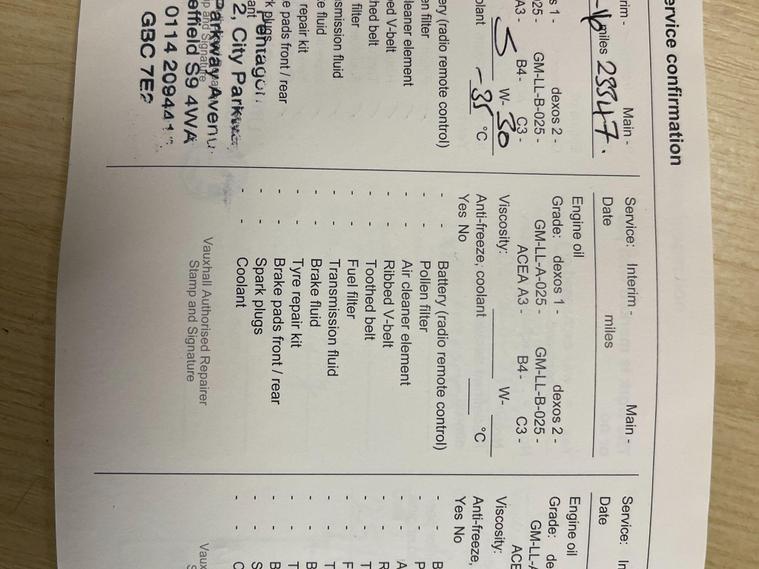 ervice confirmation
rim - Main -
miles 23347.
s 1 - dexos 2 -
025 - GM-LL-B-025 -
A3 - B4- C3 -
5 W- 30
olant -35 °C
ery (radio remote control)
en filter
leaner element
ed V-belt
hed belt
filter
smission fluid
e fluid
repair kit
e pads front / rear
k plugs
ant
Pentagon
2, City Park
Parkway Avenu
effield S9 4WA
0114 209441
GBC 7E2
p and Signature
Service: Interim - Main -
Date miles
Engine oil
Grade: dexos 1 - dexos 2 -
GM-LL-A-025 - GM-LL-B-025 -
ACEA A3 - B4 - C3 -
Viscosity: W-
Anti-freeze, coolant °C
Yes No
- - Battery (radio remote control)
- - Pollen filter
- - Air cleaner element
- - Ribbed V-belt
- - Toothed belt
- - Fuel filter
- - Transmission fluid
- - Brake fluid
- - Tyre repair kit
- - Brake pads front / rear
- - Spark plugs
- - Coolant
Vauxhall Authorised Repairer
Stamp and Signature
Service: In
Date
Engine oil
Grade: de
GM-LL-A
ACE
Viscosity:
Anti-freeze,
Yes No
- - B
- - P
- - A
- - R
- - T
- - F
- - T
- - B
- - T
- - B
- - S
- - C
Vaux
S